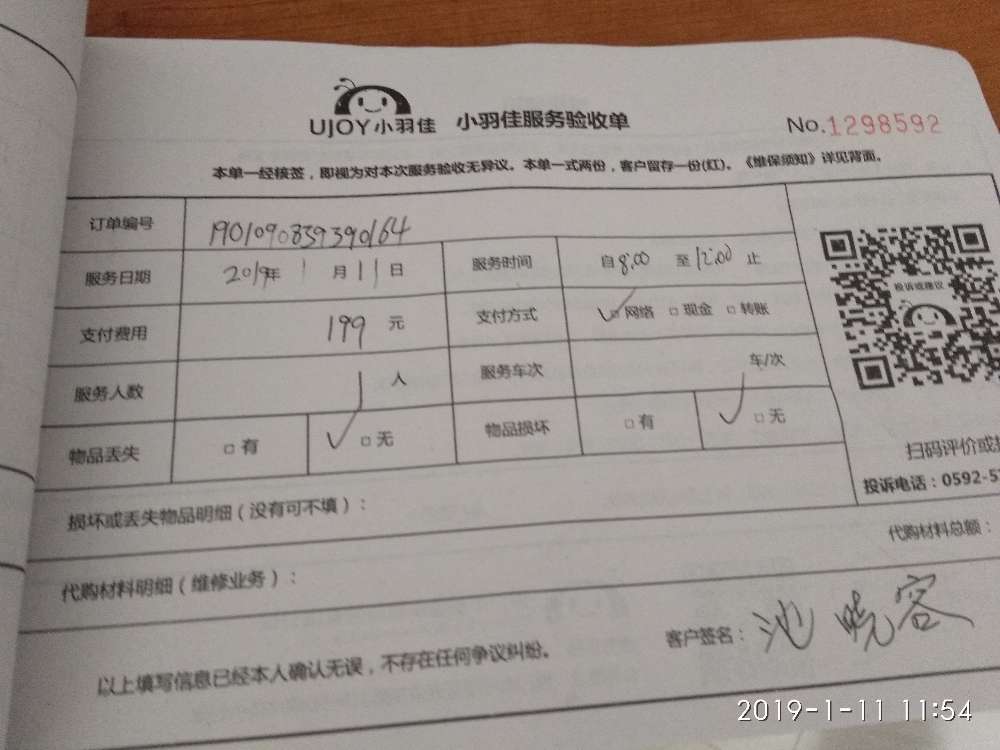 UJOY小羽佳 小羽佳服务验收单 No.1298592
本单一经核签，即视为对本次服务验收无异议。本单一式两份，客户留存一份(红)。《维保须知》详见背面。
订单编号 1901090839390164
服务日期 2019年 1 月 11 日 服务时间 自 8:00 至 12:00 止
支付费用 199 元 支付方式 ✓□网络 □现金 □转账
服务人数 1 人 服务车次 车/次
物品丢失 □有 ✓□无 物品损坏 □有 ✓□无
投诉或建议
扫码评价或
投诉电话：0592-5
损坏或丢失物品明细（没有可不填）：
代购材料总额：
代购材料明细（维修业务）：
以上填写信息已经本人确认无误，不存在任何争议纠纷。 客户签名：池晓容
2019-1-11 11:54